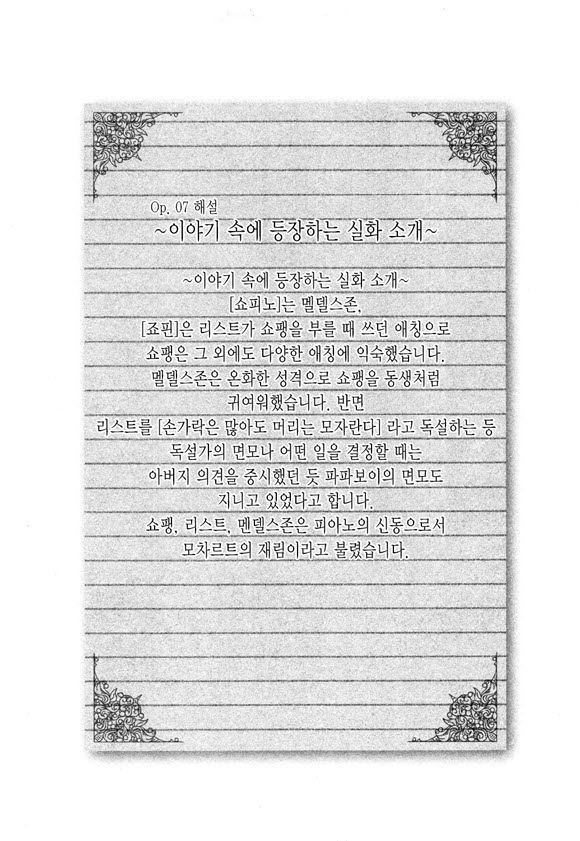 Op. 07 해설
~이야기 속에 등장하는 실화 소개~
~이야기 속에 등장하는 실화 소개~
[쇼피노]는 멜델스존,
[죠핀]은 리스트가 쇼팽을 부를 때 쓰던 애칭으로
쇼팽은 그 외에도 다양한 애칭에 익숙했습니다.
멜델스존은 온화한 성격으로 쇼팽을 동생처럼
귀여워했습니다. 반면
리스트를 [손가락은 많아도 머리는 모자란다] 라고 독설하는 등
독설가의 면모나 어떤 일을 결정할 때는
아버지 의견을 중시했던 듯 파파보이의 면모도
지니고 있었다고 합니다.
쇼팽, 리스트, 멘델스존은 피아노의 신동으로서
모차르트의 재림이라고 불렸습니다.